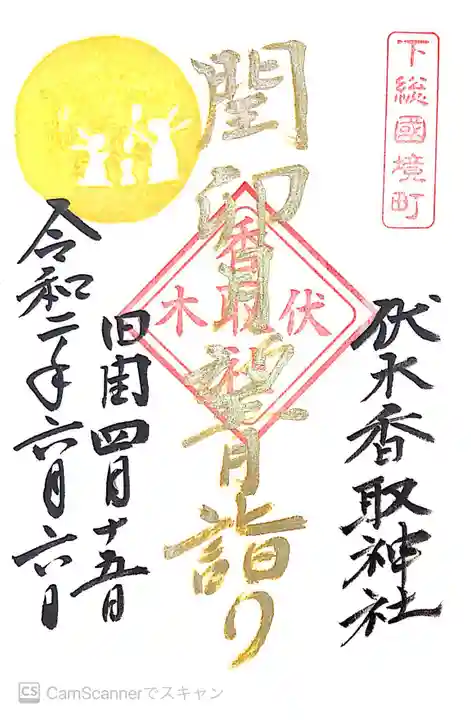 下総國境町
伏木香取神社
閏卯月望月詣り
香取社
伏木
旧閏四月十五日
令和二年六月六日
CS CamScannerでスキャン